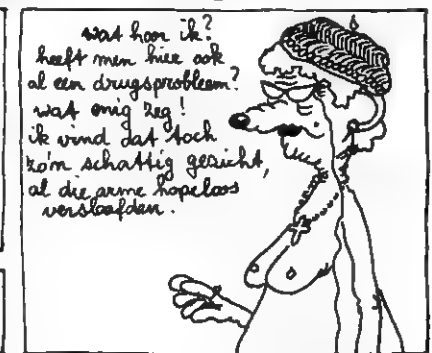 wat hoor ik?
heeft men hier ook
al een drugsprobleem?
wat enig zeg!
ik vind dat toch
zo'n schattig gezicht,
al die arme hopeloos
verslaafden.